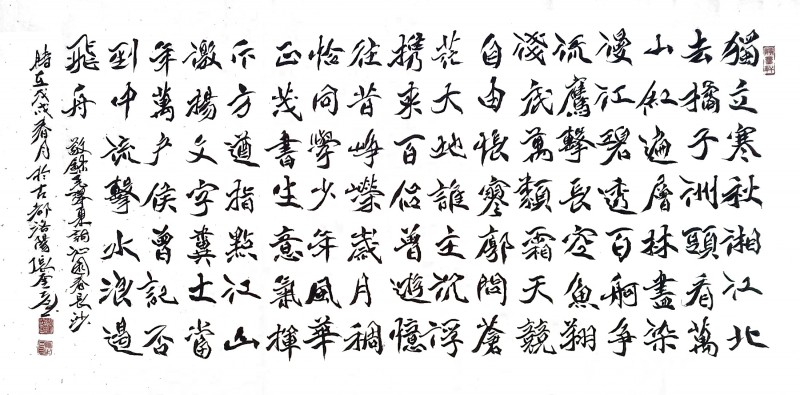 獨立寒秋湘江北
去橘子洲頭看萬
山紅遍層林盡染
漫江碧透百舸争
流鷹擊長空魚翔
淺底萬類霜天競
自由悵寥廓問蒼
茫大地誰主沉浮
携來百侣曾遊憶
往昔崢嶸歲月稠
恰同學少年風華
正茂書生意氣揮
斥方遒指點江山
激揚文字糞土當
年萬户侯曾記否
到中流擊水浪遏
飛舟
敬錄毛澤東詞沁園春長沙
時在戊戌春月於古都洛陽張